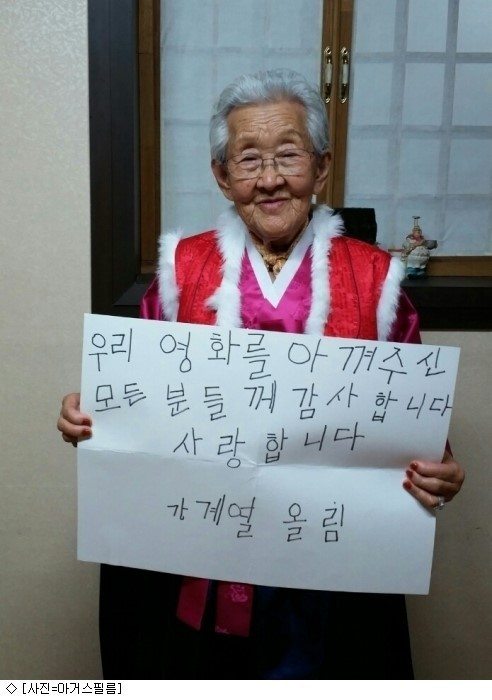 우리 영화를 아껴주신
모든 분들께 감사합니다
사랑합니다
강계열 올림
◇ [사진=아거스필름]